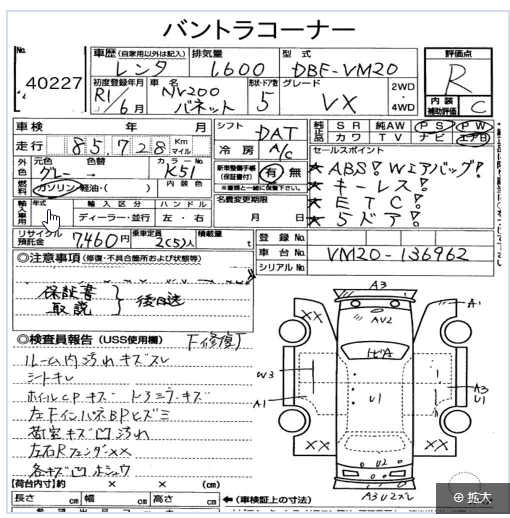 バントラコーナー
No. 40227
車歴 (自家用以外は記入) レンタ
排気量 1,600
型式 DBF-VM20
評価点 R
初度登録年月 R1/6月
車名 NV200 バネット
形状・ドア数 5
グレード VX
2WD・4WD
内装補助評価 C
車検 年 月
シフト DAT
純正品 SR 純AW PS PW
カワ TV ナビ エアB
走行 85,728 Km マイル
冷房 A/C
セールスポイント
★ABS! Wエアバッグ!
★キーレス!
★ETC!
★5ドア!
外色 元色 グレー 色替 → カラーNo. K51
新車整備手帳 (保証書付) 有・無
※書類と一緒に保管下さい。
燃料 ガソリン・軽油・( ) 内装色
名義変更期限 月 日
輸入車用 年式 輸入区分 ディーラー・並行 ハンドル 左・右
リサイクル預託金 7,460円
乗車定員 2(5)人
積載量 t
登録No.
車台No. VM20-136962
シリアルNo.
◎注意事項 (修復・不具合箇所および状態等)
保証書
取説 } 後日送
◎検査員報告 (USS使用欄) 下修復
ルーム内汚れキズスレ
シートキレ
ホイルCPキズ
左Fインパネ BPヒズミ
荷室キズ凹汚れ
左右Rフェンダ××
各キズ凹ホシュウ
【荷台内寸】約 × × (cm)
長さ cm 幅 cm 高さ cm ←(車検証上の寸法)
A3
××
A1
AU2
ヒビA
W3
U1
A1
A3
U1
××
××
U2
A3U2スレ
拡大